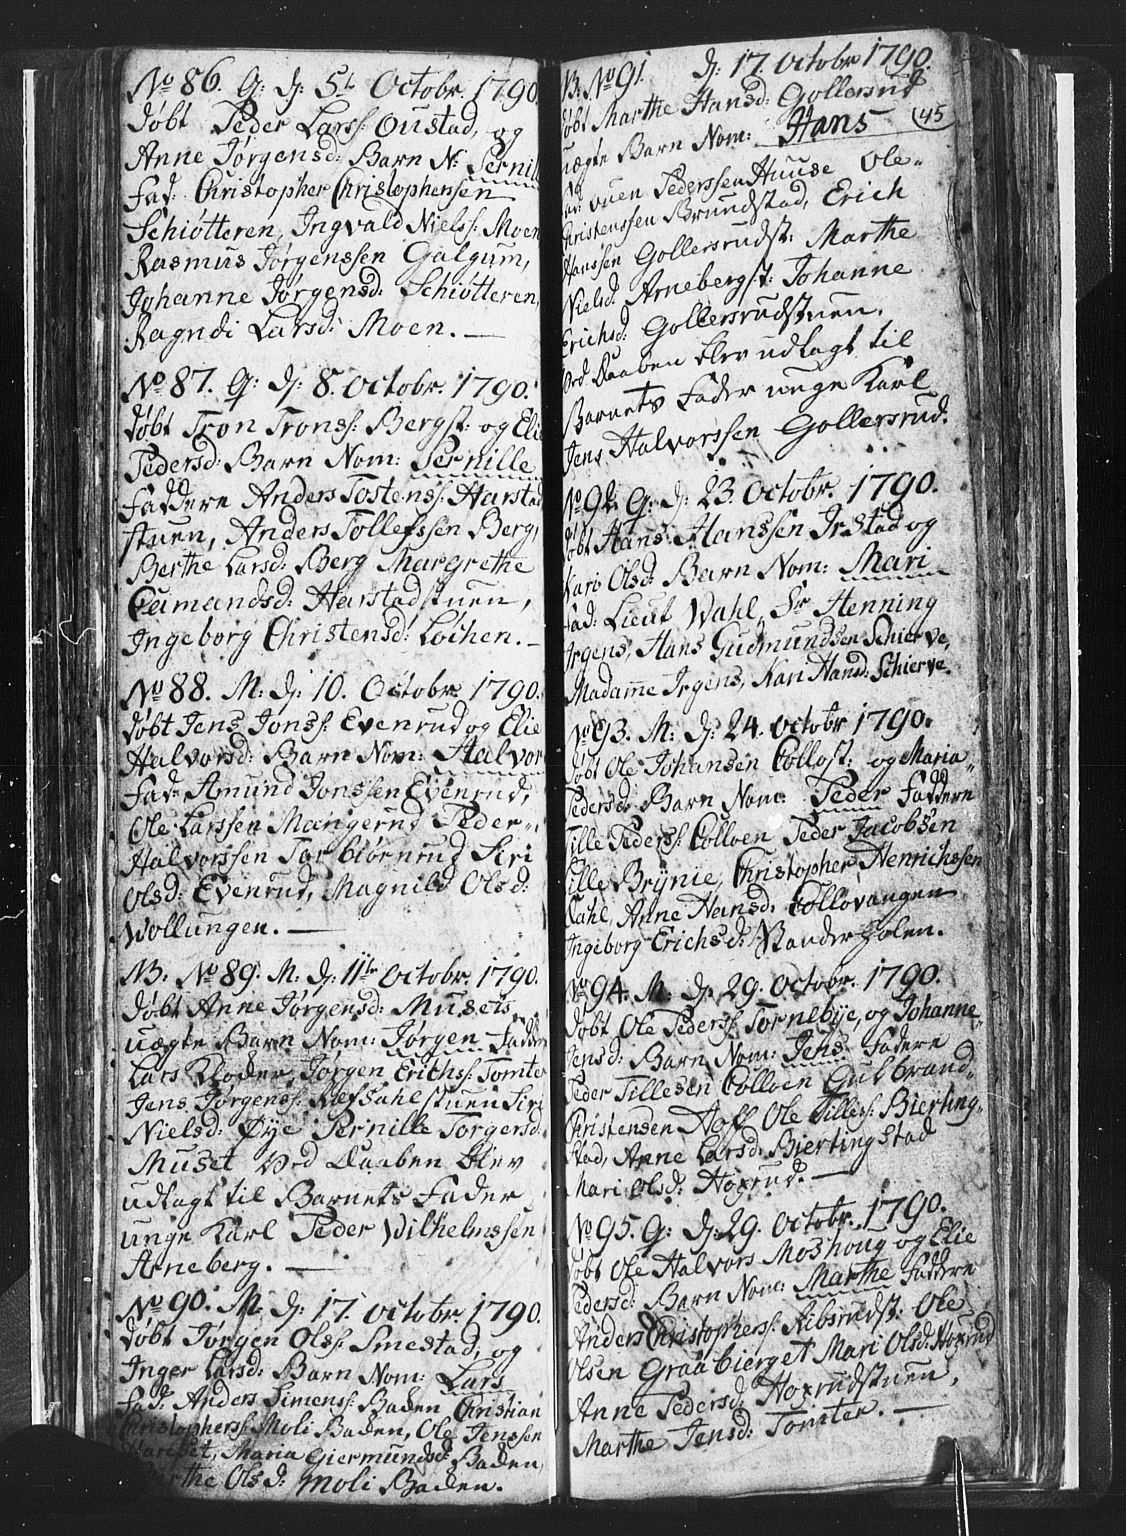 No 86. G: D: 5t Octobr. 1790.
døbt Peder Larss: Oustad, og
Anne Jørgensd: Barn N: Pernille
Fad: Christopher Christophersen
Schiøtteren, Ingvald Nielss: Moen
Rasmus Jørgenssen Galgum,
Johanne Jørgensd: Schiøtteren,
Ragndi Larsd: Moen. —
No 87. G: D: 8. Octobr. 1790.
døbt Tron Trons: Bergst: og Elie
Pedersd: Barn Nom: Pernille
Faddere Anders Tostens: Harstad
stuen, Anders Tollefssen Berg,
Berthe Larsd: Berg Margrethe
Harstadstuen,
Ingeborg Christensd: Løchen. —
No 88. M: D: 10. Octobr. 1790.
døbt Jens Jonss: Evenrud og Elie
Halvorsd: Barn Nom: Halvor
Fad: Amund Jonssen Evenrud,
Ole Larssen Mangerud Peder
Halvorssen Torbiørnrud Siri
Olsd: Evenrud, Magnild Olsd:
Wollungen. —
NB: No 89. M: D: 11te Octobr. 1790.
døbt Anne Jørgensd: Musets
uægte Barn Nom: Jørgen Faddere
Lars Kloder, Jørgen Erichs: Tomter
Jens Jørgens: Refsahlstuen Siri
Nielsd: Øye Pernille Torgersd:
Muset Ved Daaben blev
udlagt til Barnets Fader
unge Karl Peder Wilhelmssen
Arneberg. —
No 90. M: D: 17. Octobr. 1790.
døbt Jørgen Olss: Smestad, og
Inger Larsd: Barn Nom: Lars
Fad: Anders Simens: Baden Christian
Christophers: Moli Baden, Ole Jenssen
Harset, Maria Giermundsd: Baden,
Berthe Olsd: Moli Baden.
NB: No 91. D: 17 Octobr 1790.
døbt Marthe Hansd: Gollersrud
uægte Barn Nom: Hans 45
Fad: Ouen Pederssen Huuse Ole
Christenssen Brundstad, Erich
Hanssen Gollersrudst: Marthe
Nielsd: Arnebergst: Johanne
Erichsd: Gollersrudstuen.
Ved Daaben blev udlagt til
Barnets Fader unge Karl
Jens Halvorssen Gollersrud.
No 92. G: D: 23. Octobr. 1790.
døbt Hans Hanssen Irstad og
Kari Olsd: Barn Nom: Mari
Fad: Lieut Wahl, Sr Henning
Irgens, Hans Gudmundsen Schierve,
Madame Irgens, Kari Hansd: Schierve.
No 93. M: D: 24. Octobr 1790.
døbt Ole Johansen Collost: og Maria
Pedersd: Barn Nom: Peder Faddere
Tille Peders: Colloen Peder Jacobsen
Lille Brynie, Christopher Henrichssen
Dahl, Anne Hansd: Collovangen
Ingeborg Erichsd:
No 94. M: D: 29. Octobr. 1790.
døbt Ole Peders: Tornebye, og Johanne
Jensd: Barn Nom: Jens Fadere
Peder Tillesen Colloen Gulbrand
Christensen Hoff Ole Tilless: Bierting
stad, Anne Larsd: Biertingstad
Mari Olsd: Hoxrud. —
No 95. G: D: 29. Octobr. 1790.
døbt Ole Halvors Moshoug og Elie
Pedersd: Barn Nom: Marthe Faddere
Anders Christophers: Ribsrudst: Ole
Olsen Graabierget Mari Olsd: Hoxrud
Anne Pedersd: Hoxrudstuen,
Marthe Jensd: Tomter. —